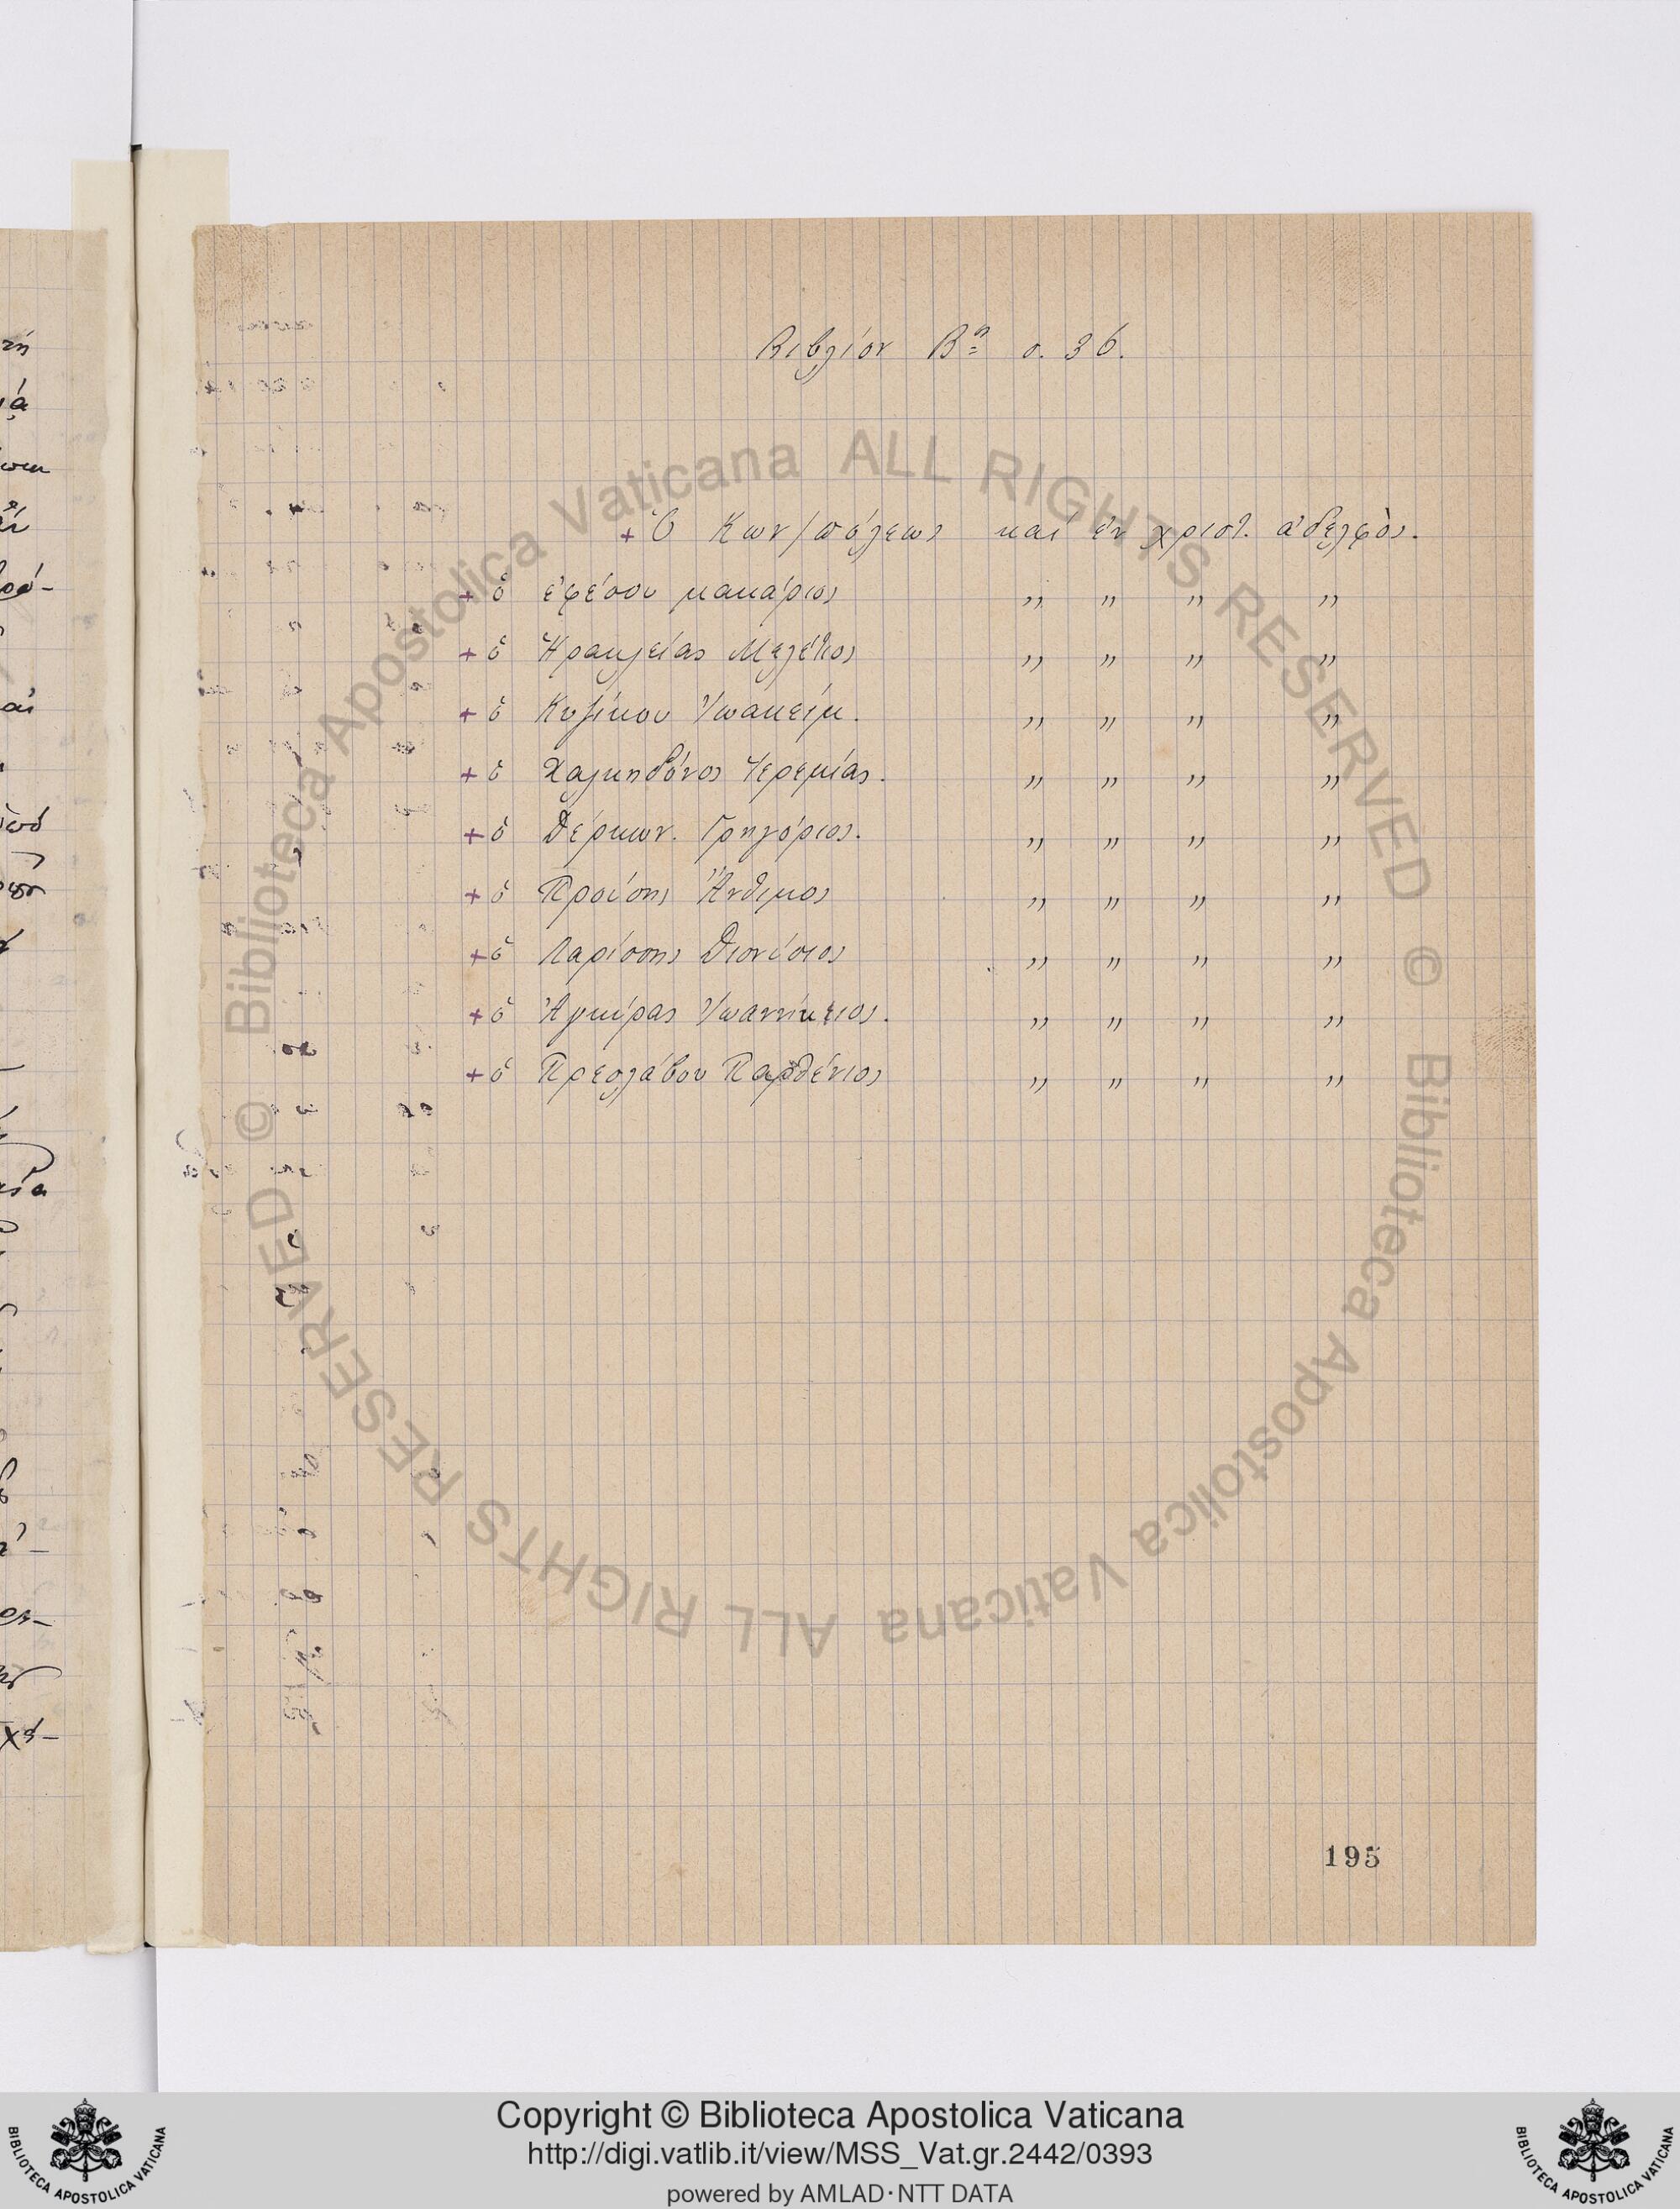 Βιβλίον Βον σ. 36.
+ Ὁ Κων/πόλεως καὶ ἐν χριστ. ἀδελφὸς.
+ ὁ ἐφέσου μακάριος ,, ,, ,, ,,
+ ὁ Ἡρακλείας Μελέτιος ,, ,, ,, ,,
+ ὁ Κυζίκου Ἰωακείμ. ,, ,, ,, ,,
+ ὁ Χαλκηδόνος Ἱερεμίας. ,, ,, ,, ,,
+ ὁ Δέρκων. Γρηγόριος. ,, ,, ,, ,,
+ ὁ Προύσης Ἄνθιμος ,, ,, ,, ,,
+ ὁ Λαρίσσης Διονύσιος ,, ,, ,, ,,
+ ὁ Ἀγκύρας Ἰωαννίκειος. ,, ,, ,, ,,
+ ὁ Πρεσλάβου Παρθένιος ,, ,, ,, ,,
195
© Biblioteca Apostolica Vaticana ALL RIGHTS RESERVED
© Biblioteca Apostolica Vaticana ALL RIGHTS RESERVED
BIBLIOTECA APOSTOLICA VATICANA
Copyright © Biblioteca Apostolica Vaticana
http://digi.vatlib.it/view/MSS_Vat.gr.2442/0393
powered by AMLAD·NTT DATA
BIBLIOTECA APOSTOLICA VATICANA